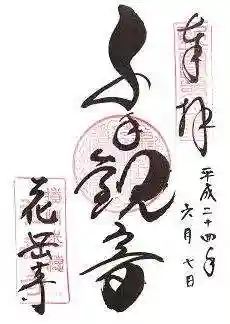 奉拝
平成二十四年
六月七日
千手観音
花岳寺